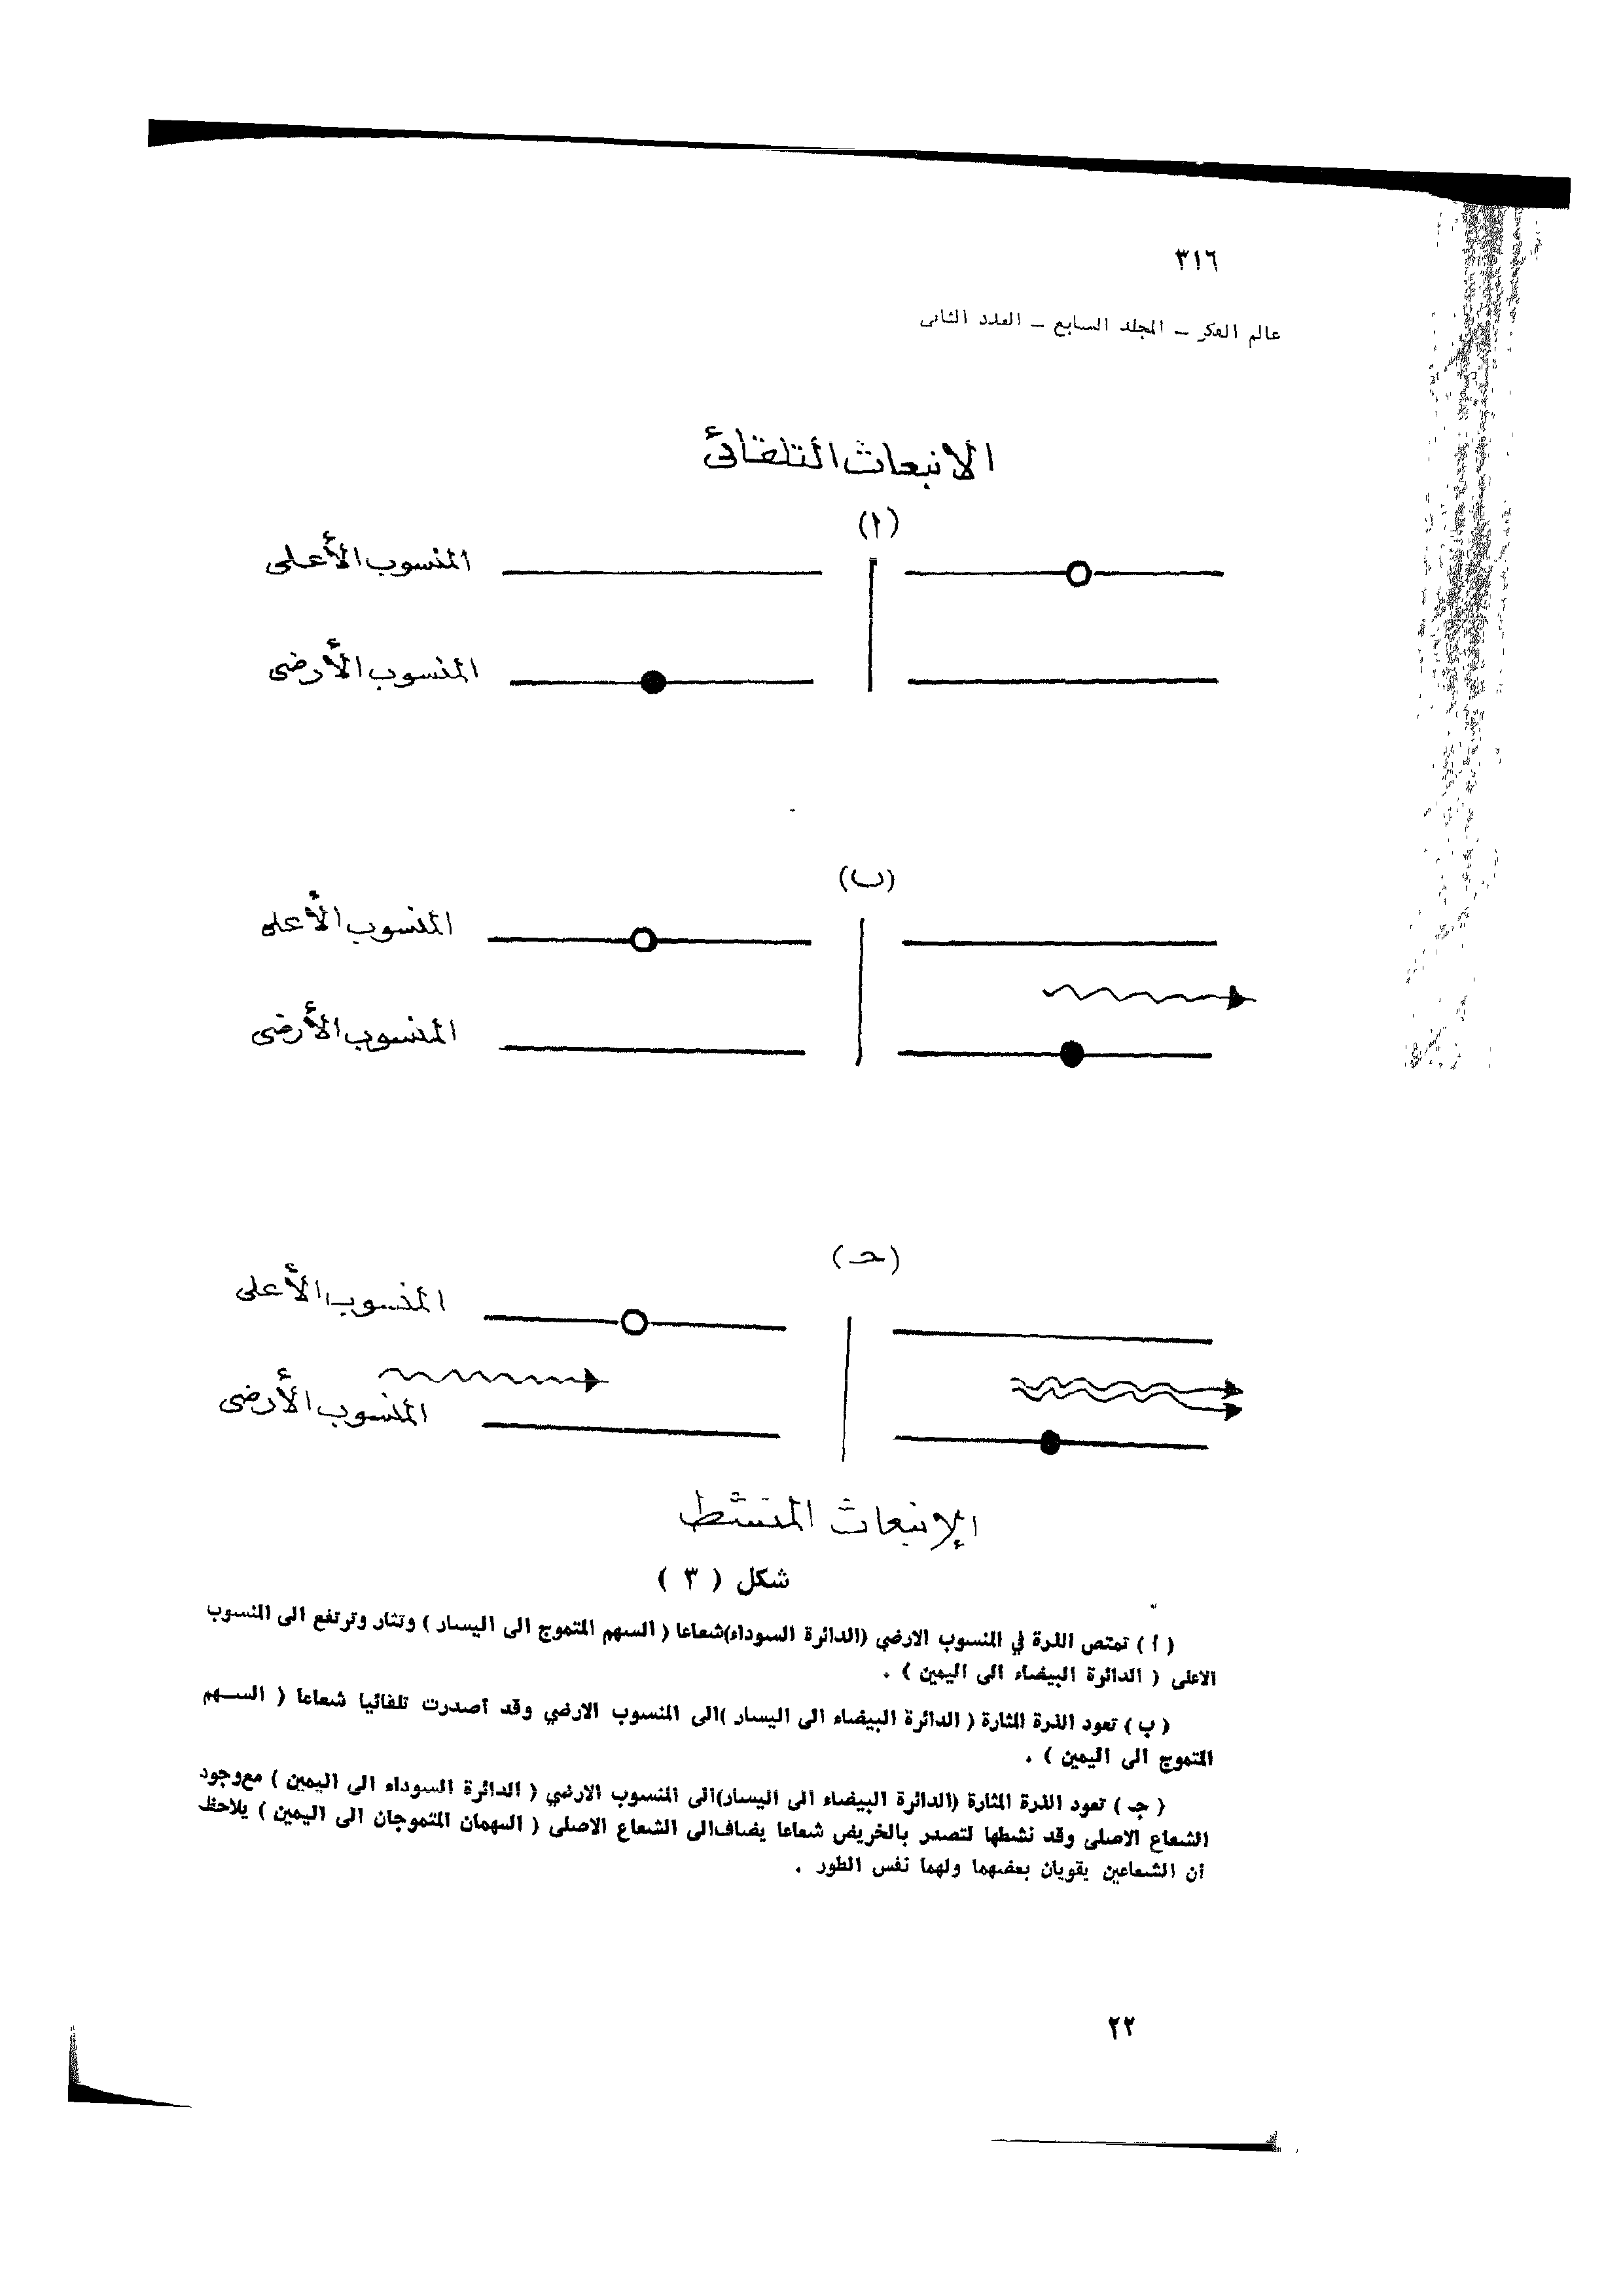 ٣١٦
عالم الفكر – المجلد السابع – العدد الثانى
الانبعاث التلقائى
(أ)
المنسوب الأعلى
المنسوب الأرضى
(ب)
المنسوب الأعلى
المنسوب الأرضى
(حـ)
المنسوب الأعلى
المنسوب الأرضى
الإنبعاث المنشط
شكل ( ٣ )
( أ ) تمتص الذرة في المنسوب الارضي (الدائرة السوداء)شعاعا ( السهم المتموج الى اليسار ) وتثار وترتفع الى المنسوب
الاعلى ( الدائرة البيضاء الى اليمين ) .
( ب ) تعود الذرة المثارة ( الدائرة البيضاء الى اليسار )الى المنسوب الارضي وقد أصدرت تلقائيا شعاعا ( الســهم
المتموج الى اليمين ) .
( جـ ) تعود الذرة المثارة (الدائرة البيضاء الى اليسار)الى المنسوب الارضي ( الدائرة السوداء الى اليمين ) مع وجود
الشعاع الاصلى وقد نشطها لتصدر بالخريض شعاعا يضاف الى الشعاع الاصلى ( السهمان المتموجان الى اليمين ) يلاحظ
أن الشعاعين يقويان بعضهما ولهما نفس الطور .
٢٢